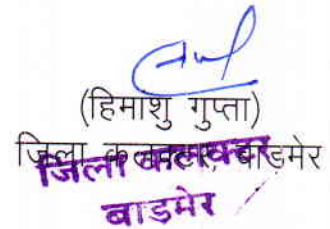 (हिमाशु गुप्ता)
जिला कलक्टर, बाडमेर
जिला कलक्टर
बाडमेर